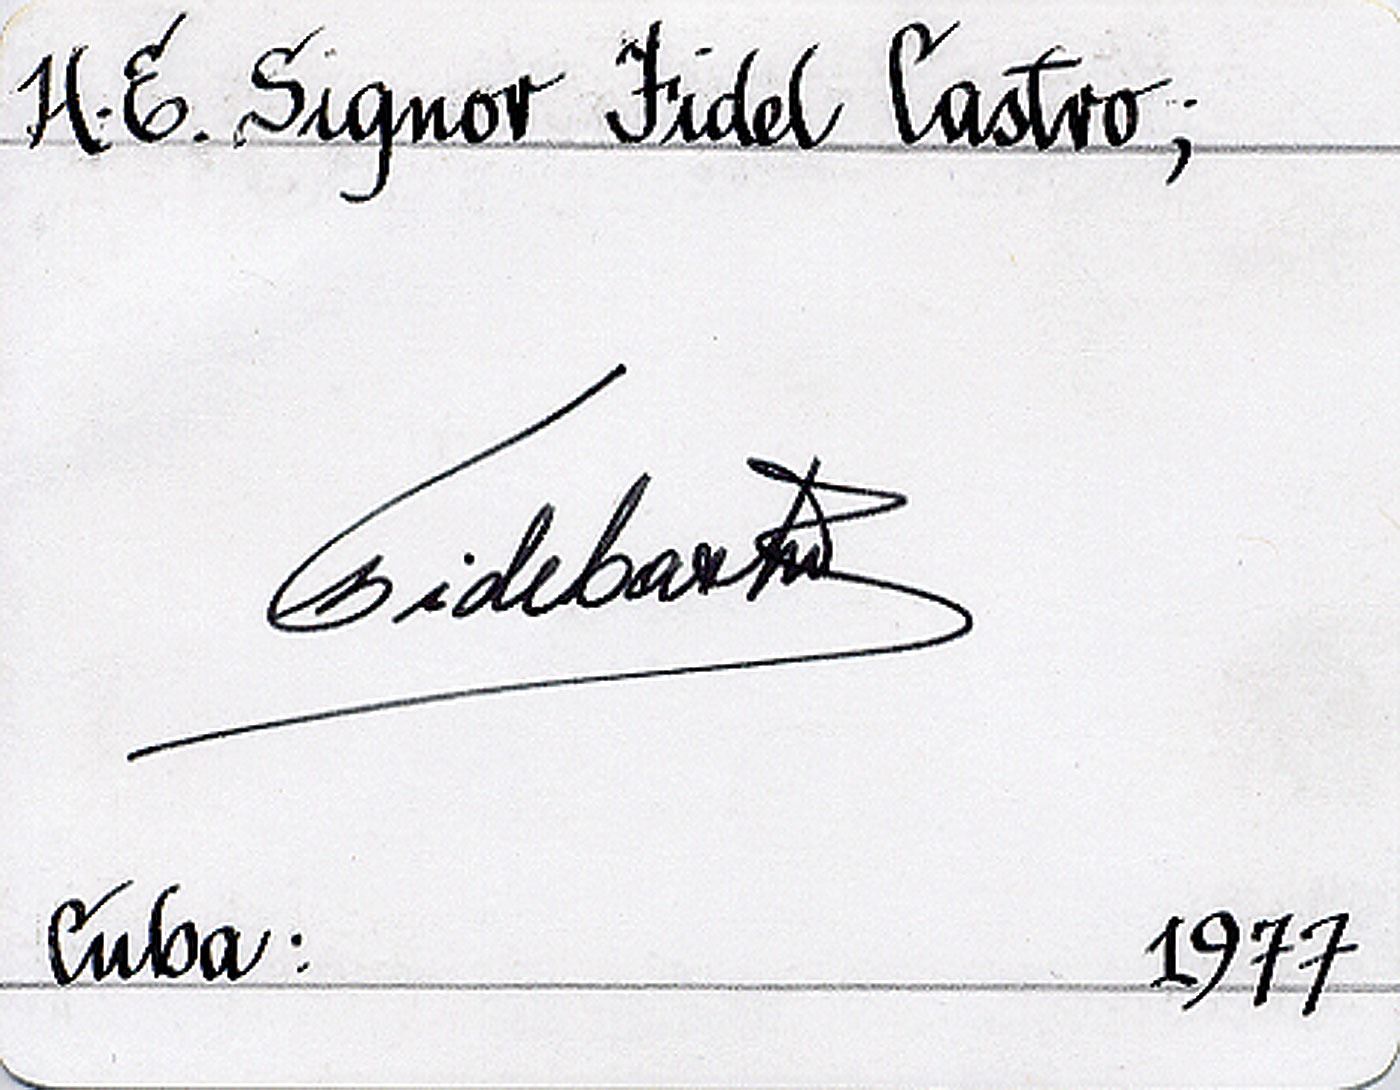 H.E. Signor Fidel Castro;
Cuba: 1977